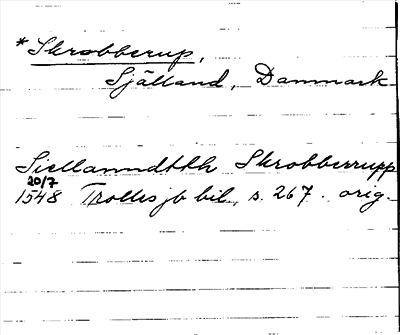 *Skrobberup,
Själland, Danmark
Siellanndtth Skrobberrupp
20/7
1548 Trolles jb bil., s. 267. orig.